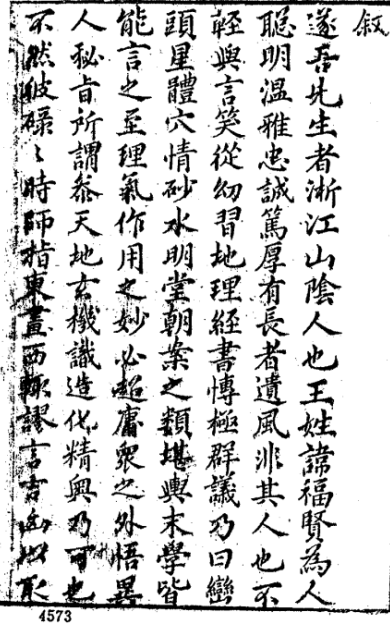 叙
遂吾先生者淅江山陰人也王姓諱福賢為人
聪明溫雅忠誠篤厚有長者遺風非其人也不
輕與言笑從幼習地理経書博極群議乃曰巒
頭星體穴情砂水明堂朝案之類堪輿末學皆
能言之至理氣作用之妙必超庸衆之外悟異
人秘旨所謂叅天地玄機識造化精奥乃可也
不然彼碌々時師指東畫西輒謬言吉凶以
4573